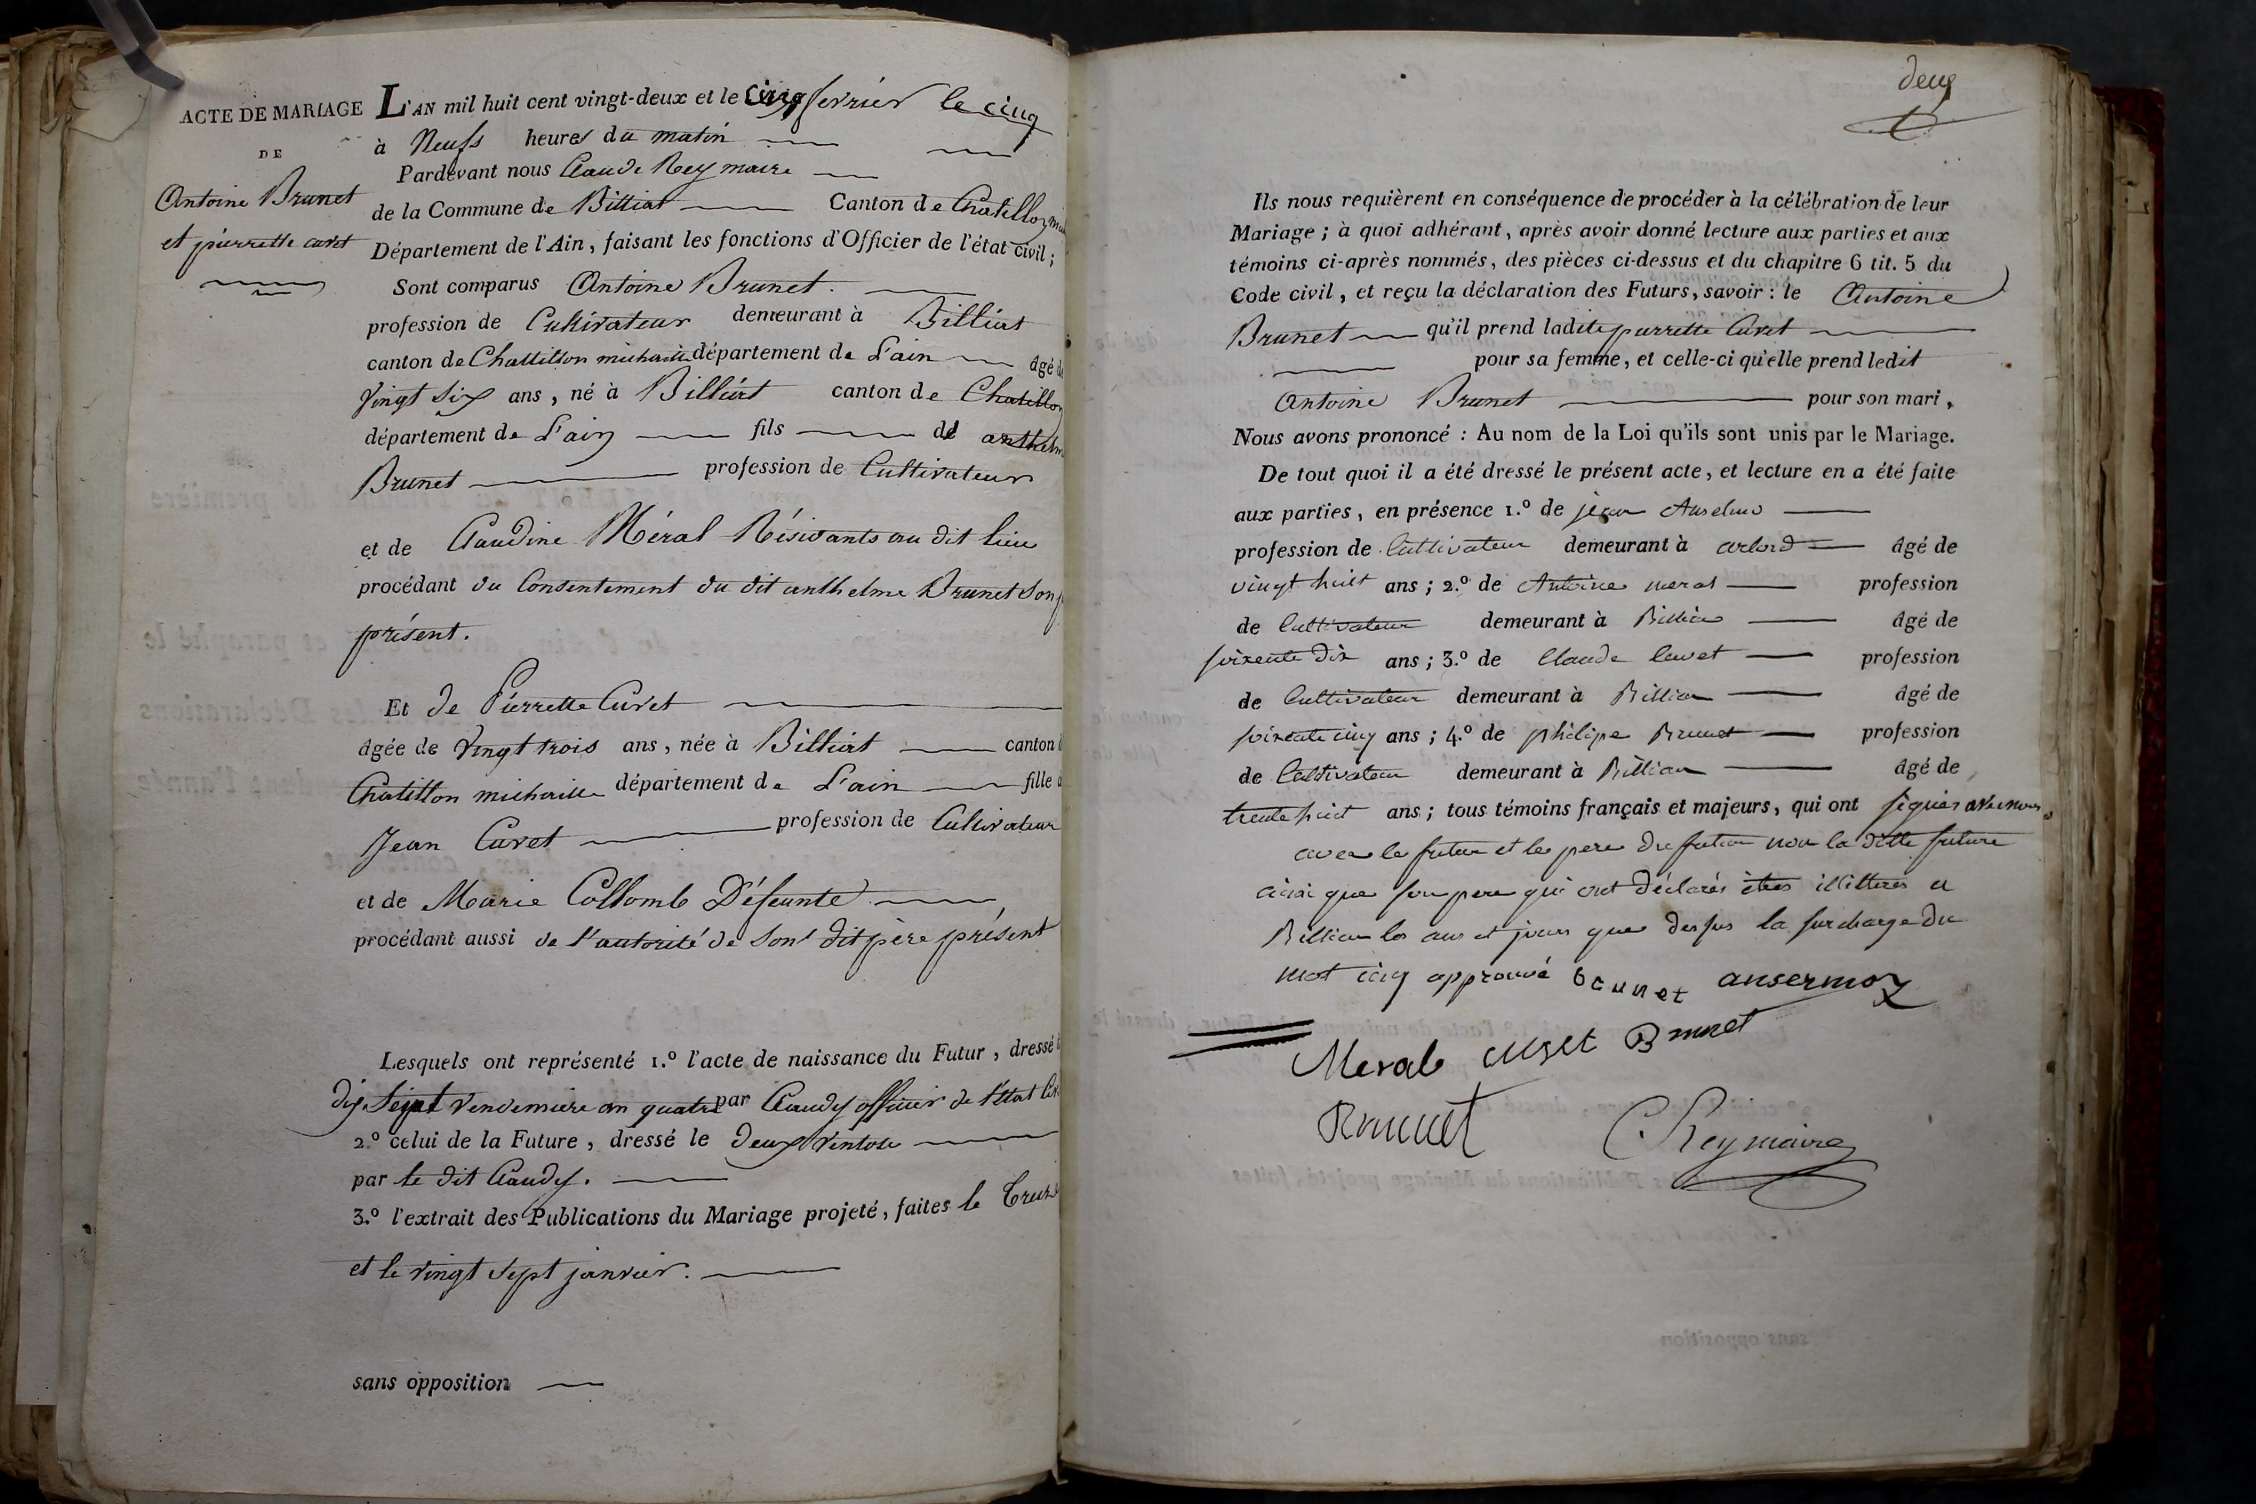 ACTE DE MARIAGE
DE
Antoine Brunet
et pierrette curet
L'AN mil huit cent vingt-deux et le Cinq fevrier le cinq
à Neufs heures du matin
Pardevant nous Claude Rey maire
de la Commune de Billiat Canton de Chatillon
Département de l'Ain, faisant les fonctions d'Officier de l'état civil;
Sont comparus Antoine Brunet.
profession de Cultivateur demeurant à Billiat
canton de Chattillon michaille département de L'ain âgé de
Vingt Six ans, né à Billiat canton de Chatillon
département de L'ain fils de anthelme
Brunet profession de Cultivateur
et de Claudine Méral Résidants au dit lieu
procédant du Consentement du dit anthelme Brunet Son
présent.
Et de Pierrette Curet
âgée de Vingt trois ans, née à Billiat canton
Chatillon michaille département de L'ain fille
Jean Curet profession de Cultivateur
et de Marie Collomb Défeunte
procédant aussi de l'autorité de Son dit père présent
Lesquels ont représenté 1.º l'acte de naissance du Futur, dressé
dix Sept Vendemiaire an quatre par Claudy officier de l'Etat
2.º celui de la Future, dressé le deux Ventose
par le dit Claudy.
3.º l'extrait des Publications du Mariage projeté, faites le
et le vingt Sept janvier.
sans opposition
deux
Ils nous requièrent en conséquence de procéder à la célébration de leur
Mariage; à quoi adhérant, après avoir donné lecture aux parties et aux
témoins ci-après nommés, des pièces ci-dessus et du chapitre 6 tit. 5 du
Code civil, et reçu la déclaration des Futurs, savoir: le Antoine
Brunet qu'il prend ladite pierrette Curet
pour sa femme, et celle-ci qu'elle prend ledit
Antoine Brunet pour son mari,
Nous avons prononcé: Au nom de la Loi qu'ils sont unis par le Mariage.
De tout quoi il a été dressé le présent acte, et lecture en a été faite
aux parties, en présence 1.º de jean
profession de Cultivateur demeurant à arlod âgé de
vingt huit ans; 2.º de Antoine meral profession
de Cultivateur demeurant à Billiat âgé de
soixente dix ans; 3.º de Claude Curet profession
de Cultivateur demeurant à Billiat âgé de
soixente cinq ans; 4.º de philipe Brunet profession
de Cultivateur demeurant à Billiat âgé de
trente huit ans; tous témoins français et majeurs, qui ont signés avec nous
avec le futur et le pere du futur non la ditte future
ainsi que son pere qui ont déclarés êtres illitterés a
Billiat les ans et jours que dessus la surcharge du
mot cinq approuvé brunet ansermoz
Meral curet Brunet
Brunet C Rey maire